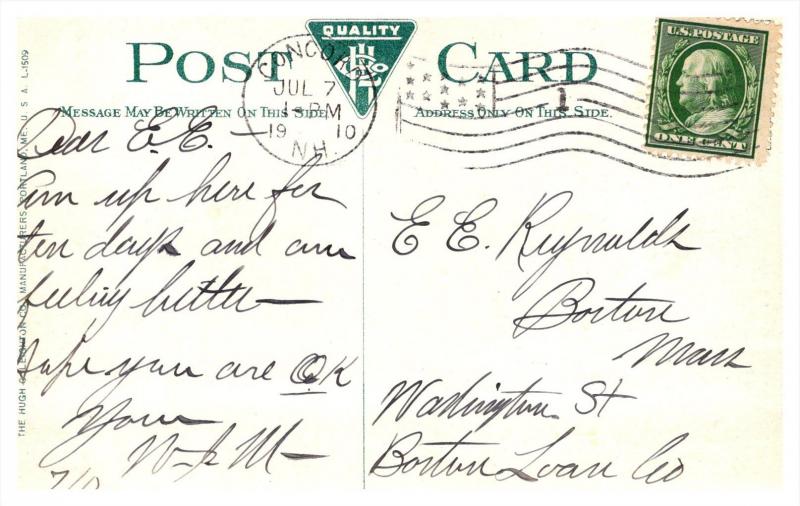 POST CARD
QUALITY
H L CO
CONCORD
JUL 7
1-PM
19 10
N.H.
1
U.S. POSTAGE
ONE CENT
MESSAGE MAY BE WRITTEN ON THIS SIDE.
ADDRESS ONLY ON THIS SIDE.
THE HUGH C. LEIGHTON CO., MANUFACTURERS, PORTLAND, ME. U. S. A. L-1509
Dear E.E.—
Am up here for
ten days and am
feeling better—
Hope you are OK
Yours
E E. Reynolds
Boston
Mass
Washington St
Boston Loan Co